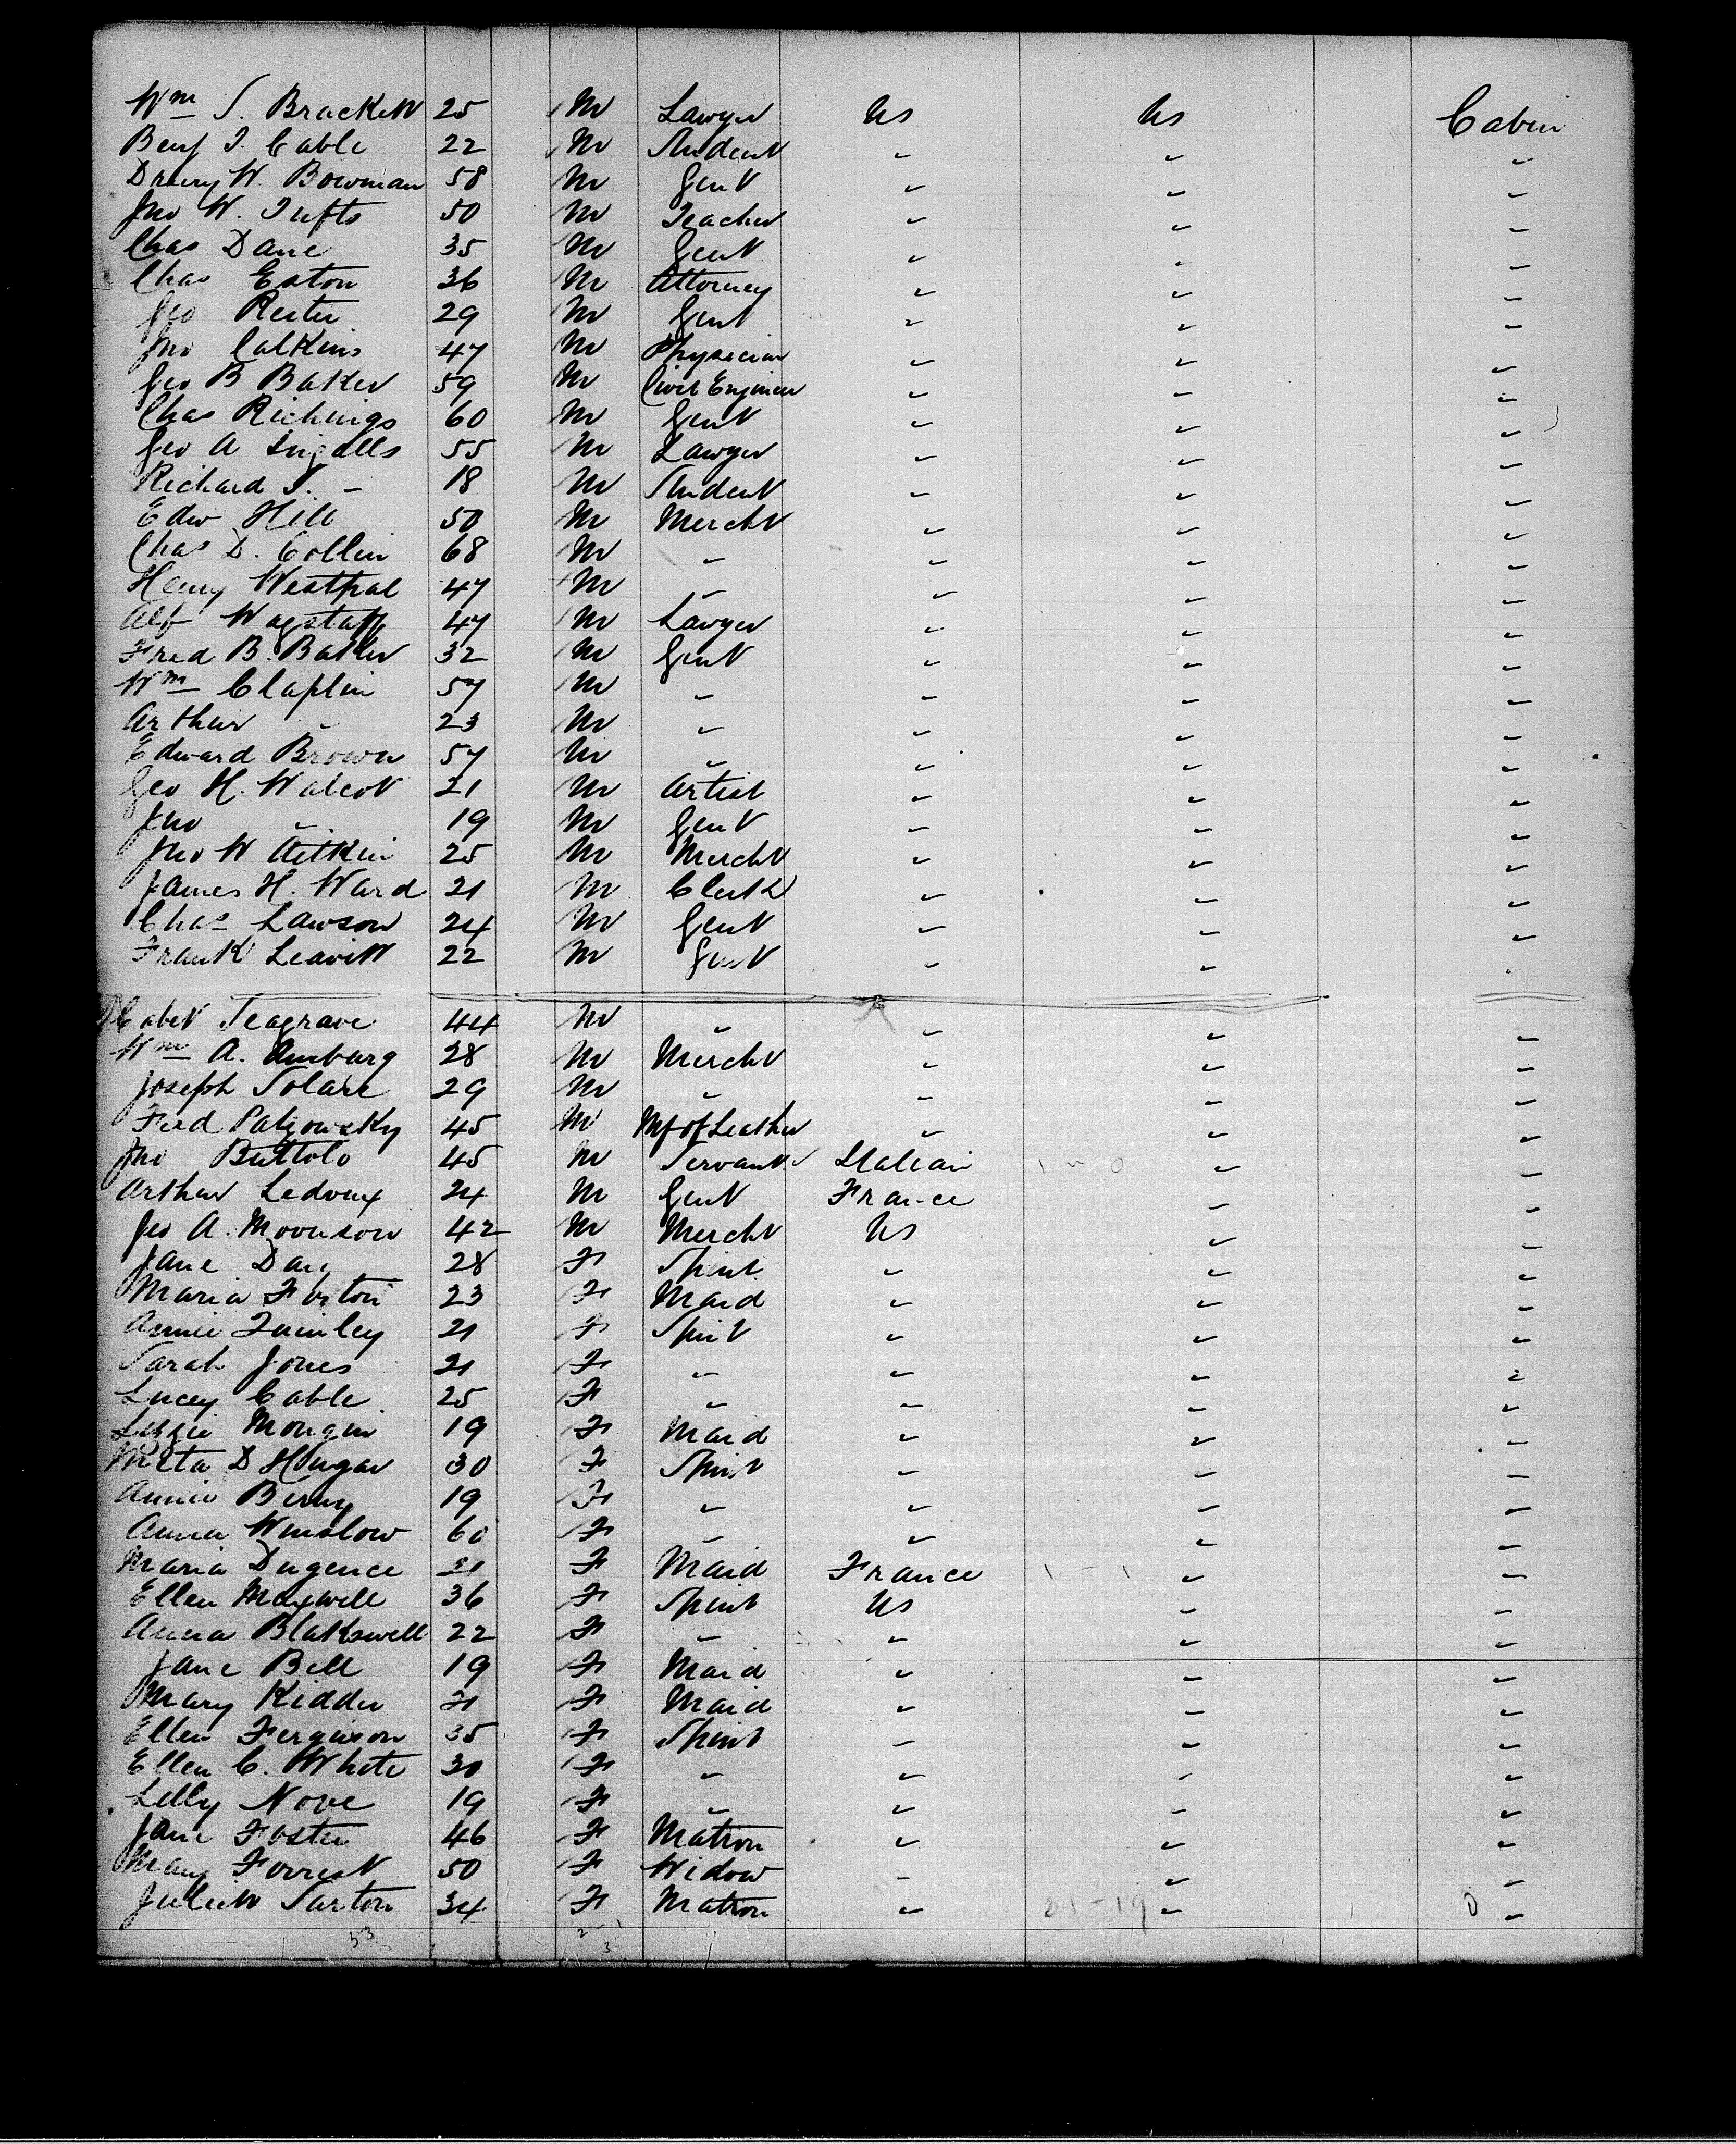 Wm S. Brackett 25 M Lawyer US US Cabin
Benj T. Cable 22 M Student " " "
Drury W. Bowman 58 M Gent " " "
Jno W. Tufts 50 M Teacher " " "
Chas Dane 35 M Gent " " "
Chas Eaton 36 M Attorney " " "
Geo Rester 29 M Gent " " "
Jno Calkins 47 M Physician " " "
Geo B Baker 59 M Civil Engineer " " "
Chas Richings 60 M Gent " " "
Geo A Ingalls 55 M Lawyer " " "
Richard S. " 18 M Student " " "
Edw Hill 50 M Mercht " " "
Chas D. Collin 68 M " " " "
Henry Westphal 47 M " " " "
Alf Wagstaff 47 M Lawyer " " "
Fred B. Baker 32 M Gent " " "
Wm Claflin 57 M " " " "
Arthur " 23 M " " " "
Edward Brown 57 M " " " "
Geo H. Walcot 21 M Artist " " "
Jno " 19 M Gent " " "
Jno W Aitkin 25 M Mercht " " "
James H. Ward 21 M Clerk " " "
Chas Lawson 24 M Gent " " "
Frank Leavitt 22 M Gent " " "
Seagrave 44 M " " " "
Wm A. Amburg 28 M Mercht " " "
Joseph Solare 29 M " " " "
Ferd Patzowsky 45 M Mf of Leather " " "
Jno Buttolo 45 M Servant Italian " "
Arthur Ledoux 24 M Gent France " "
Geo A. Moonson 42 M Mercht US " "
Jane Day 28 F Spint " " "
Maria Forton 23 F Maid " " "
Annie Quinley 21 F Spint " " "
Sarah Jones 21 F " " " "
Lucy Cable 25 F " " " "
Lizzie Mongin 19 F Maid " " "
Meta D Hungar 30 F Spint " " "
Annie Berny 19 F " " " "
Anna Winslow 60 F " " " "
Maria Dugence 21 F Maid France " "
Ellen Maxwell 36 F Spint US " "
Anna Blakswell 22 F " " " "
Jane Bell 19 F Maid " " "
Mary Kidder 21 F Maid " " "
Ellen Ferguson 35 F Spint " " "
Ellen C. White 30 F " " " "
Lilly Nove 19 F " " " "
Jane Foster 46 F Matron " " "
Mary Forrest 50 F Widow " " "
Juliett Sarton 34 F Matron " " "
53